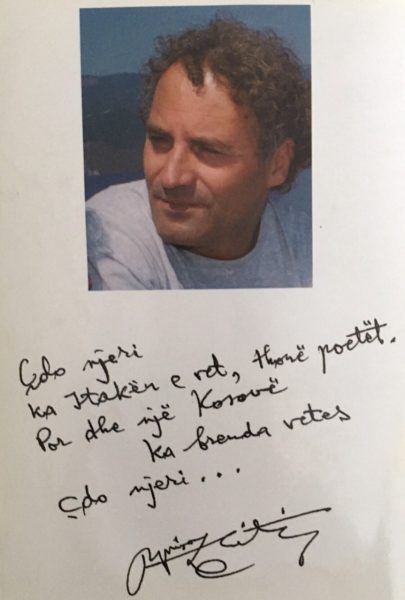 Çdo njeri
ka Itakën e vet, thonë poetët.
Por dhe një Kosovë
ka brenda vetes
Çdo njeri...